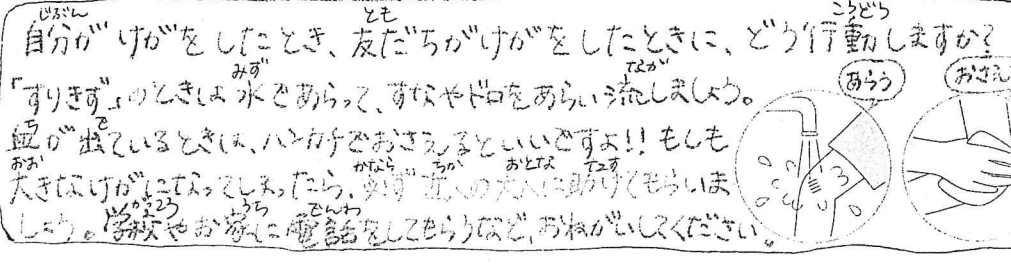 自分がけがをしたとき、友だちがけがをしたときに、どう行動しますか?
「すりきず」のときは水であらって、すなやドロをあらい流しましょう。
血が出ているときは、ハンカチでおさえるといいですよ!! もしも
大きなけがになってしまったら、必ず近くの大人に助けてもらいま
しょう。学校やお家に電話をしてもらうなど、おねがいしてください。
あらう
おさえ